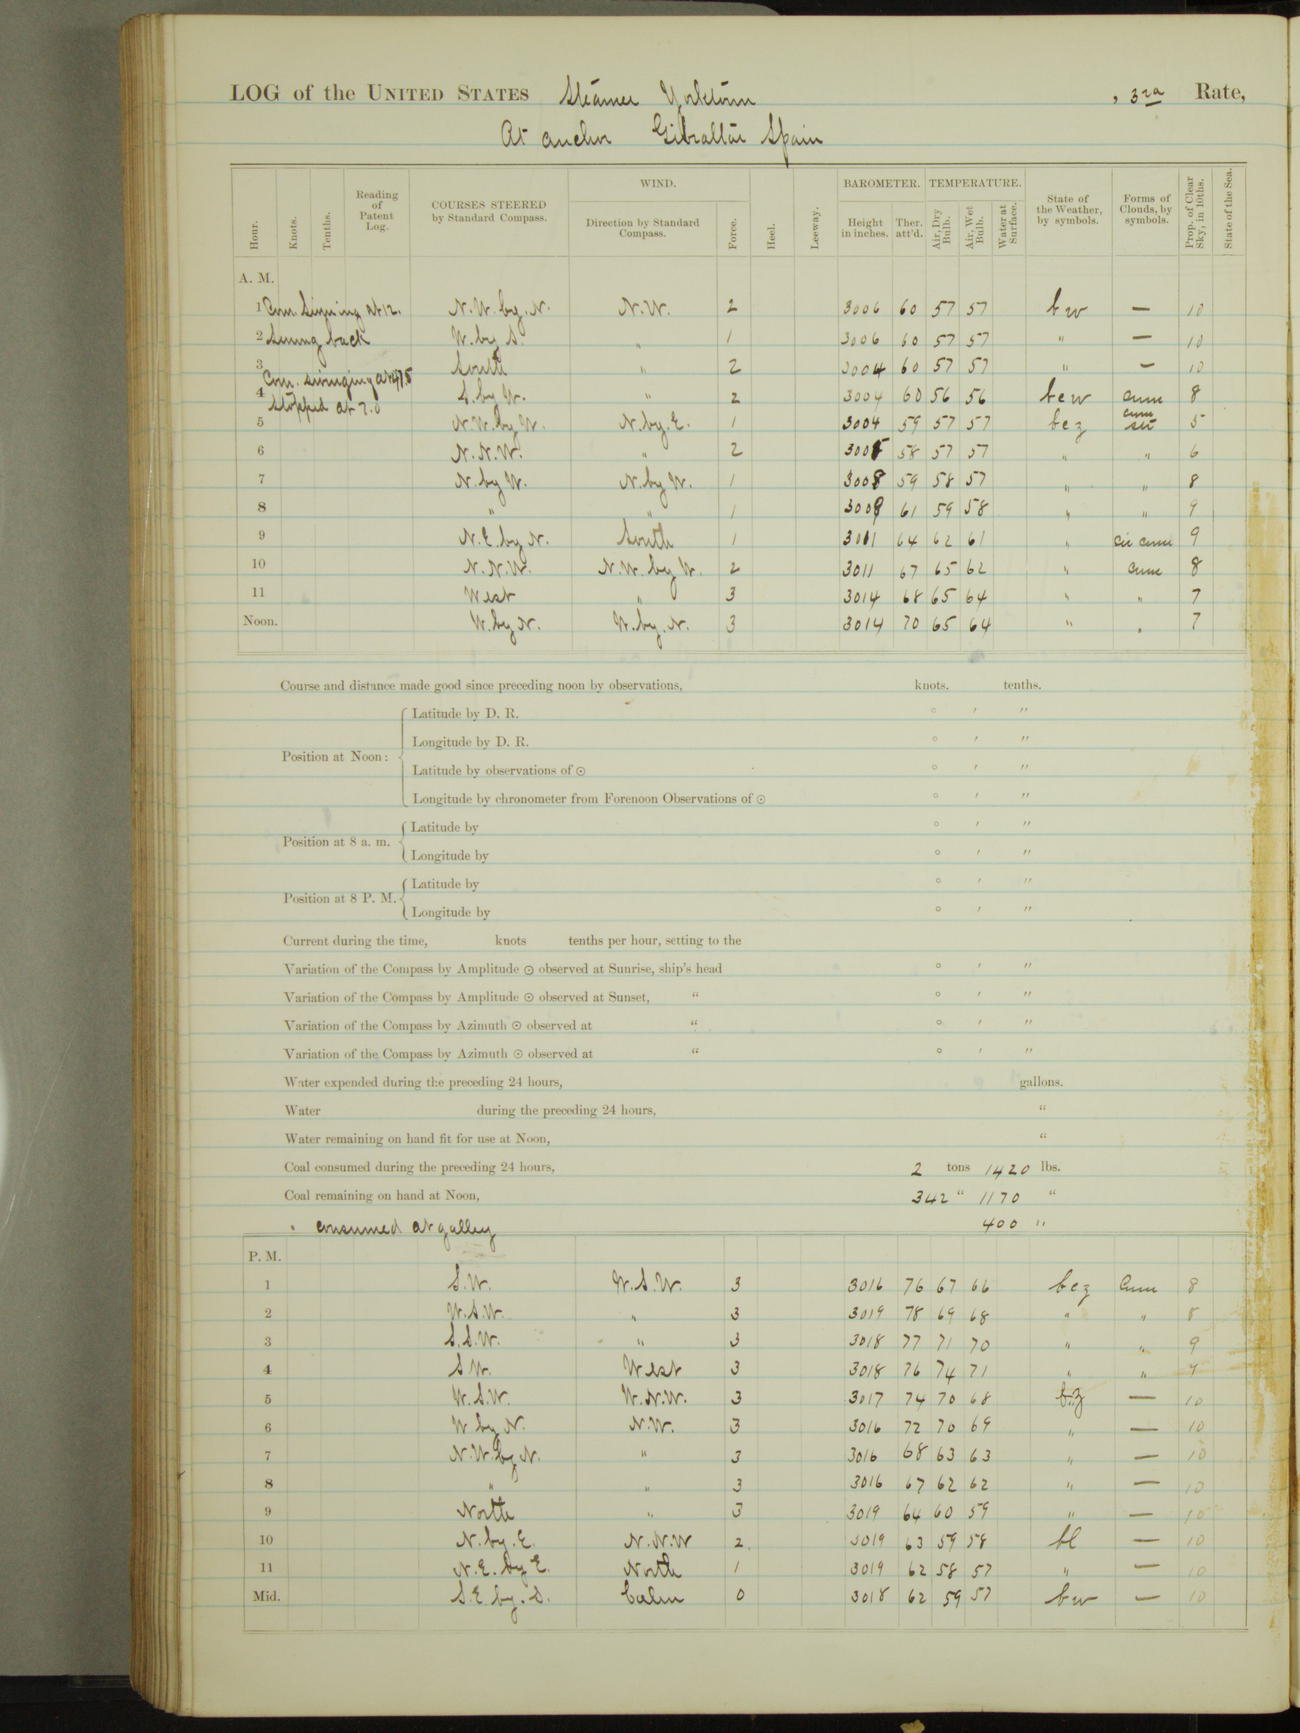 LOG of the UNITED STATES Steamer Yorktown , 3ra Rate,
At anchor Gibraltar Spain
Hour. Knots. Tenths. Reading of Patent Log. COURSES STEERED by Standard Compass. WIND. Direction by Standard Compass. Force. Heel. Leeway. BAROMETER. Height in inches. Ther. att'd. TEMPERATURE. Air, Dry Bulb. Air, Wet Bulb. Water at Surface. State of the Weather, by symbols. Forms of Clouds, by symbols. Prop. of Clear Sky, in 10ths. State of the Sea.
A. M.
1 Com. at 12. N.W. by. N. N.W. 2 3006 60 57 57 bw — 10
2 Swung back W. by S. " 1 3006 60 57 57 " — 10
3 South " 2 3004 60 57 57 " — 10
Com. swinging at
4 S. by W. " 2 3004 60 56 56 bcw cum 8
Stopped at 7.0
5 N.W. by W. N. by. E. 1 3004 59 57 57 bcz cum str 5
6 N.N.W. " 2 3005 58 57 57 " " 6
7 N. by W. N. by W. 1 3008 59 58 57 " " 8
8 " " 1 3009 61 59 58 " " 9
9 N.E. by N. South 1 3011 64 62 61 " cir cum 9
10 N.N.W. N.W. by W. 2 3011 67 65 62 " cum 8
11 West " 3 3014 68 65 64 " " 7
Noon. W. by N. W. by. N. 3 3014 70 65 64 " " 7
Course and distance made good since preceding noon by observations, knots. tenths.
Position at Noon: Latitude by D. R. ° ′ ″
Longitude by D. R. ° ′ ″
Latitude by observations of ⊙ ° ′ ″
Longitude by chronometer from Forenoon Observations of ⊙ ° ′ ″
Position at 8 a. m. Latitude by ° ′ ″
Longitude by ° ′ ″
Position at 8 P. M. Latitude by ° ′ ″
Longitude by ° ′ ″
Current during the time, knots tenths per hour, setting to the
Variation of the Compass by Amplitude ⊙ observed at Sunrise, ship's head ° ′ ″
Variation of the Compass by Amplitude ⊙ observed at Sunset, " ° ′ ″
Variation of the Compass by Azimuth ⊙ observed at " ° ′ ″
Variation of the Compass by Azimuth ⊙ observed at " ° ′ ″
Water expended during the preceding 24 hours, gallons.
Water during the preceding 24 hours, "
Water remaining on hand fit for use at Noon, "
Coal consumed during the preceding 24 hours, 2 tons 1420 lbs.
Coal remaining on hand at Noon, 342 " 1170 "
" consumed at galley 400 "
P. M.
1 S.W. W.S.W. 3 3016 76 67 66 bcz Cum 8
2 W.S.W. " 3 3019 78 69 68 " " 8
3 S.S.W. " 3 3018 77 71 70 " " 9
4 S.W. West 3 3018 76 74 71 " " 9
5 W.S.W. W.N.W. 3 3017 74 70 68 bz — 10
6 W by N. N.W. 3 3016 72 70 69 " — 10
7 N.W. by N. " 3 3016 68 63 63 " — 10
8 " " 3 3016 67 62 62 " — 10
9 North " 3 3019 64 60 59 " — 10
10 N. by. E. N.N.W 2. 3019 63 59 58 bl — 10
11 N.E. by E. North 1 3019 62 58 57 " — 10
Mid. S.E. by. S. Calm 0 3018 62 59 57 bw — 10